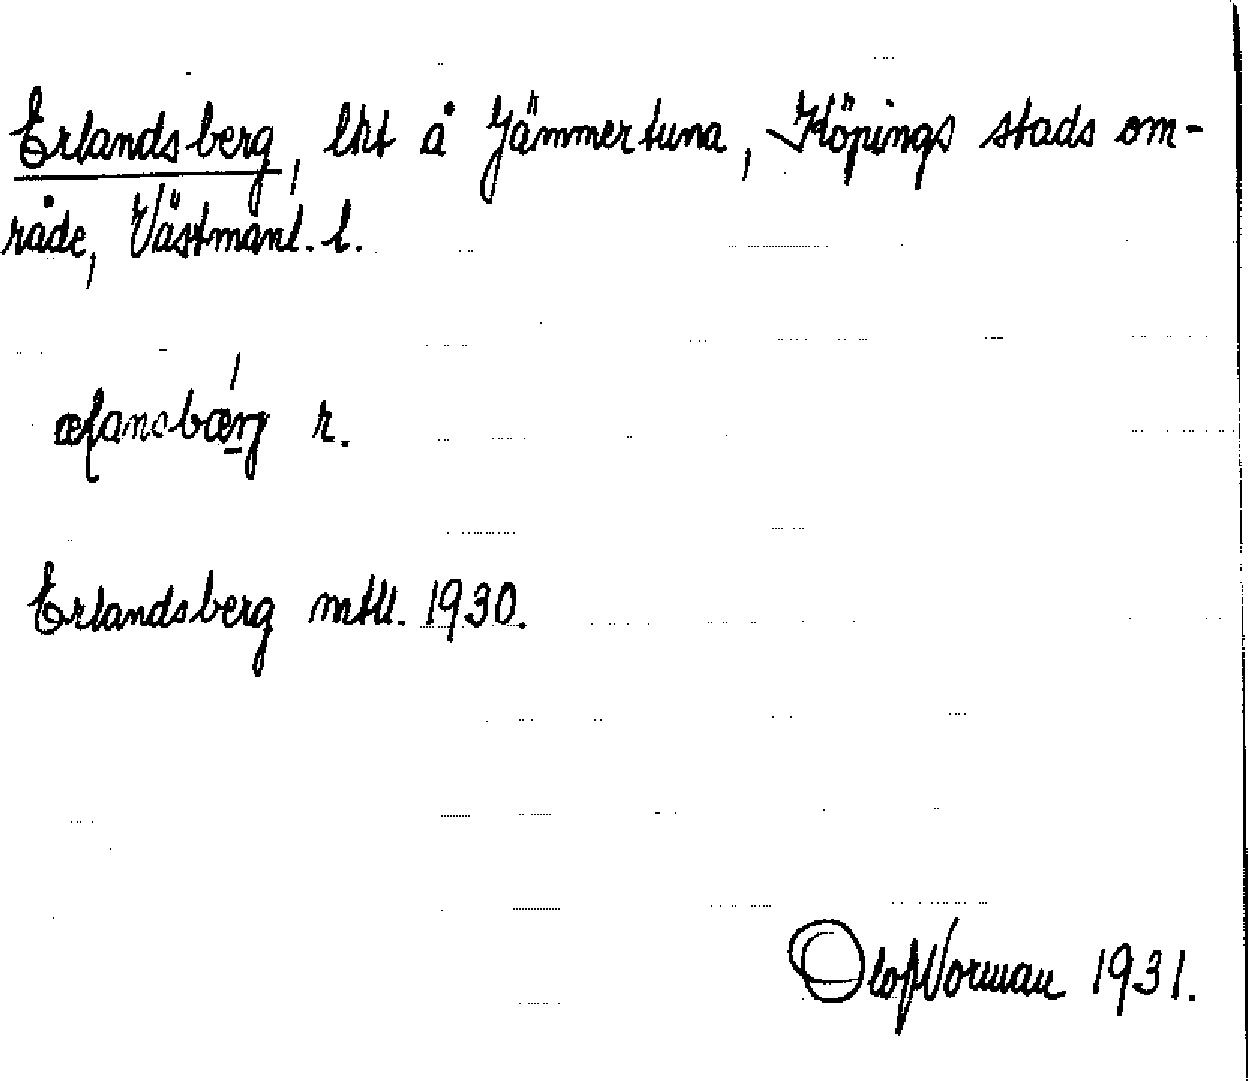 Erlandsberg, lht å Jämmertuna, Köpings stads om-
råde, Västmanl. l.
r.
Erlandsberg mtll. 1930.
Olof Norman 1931.